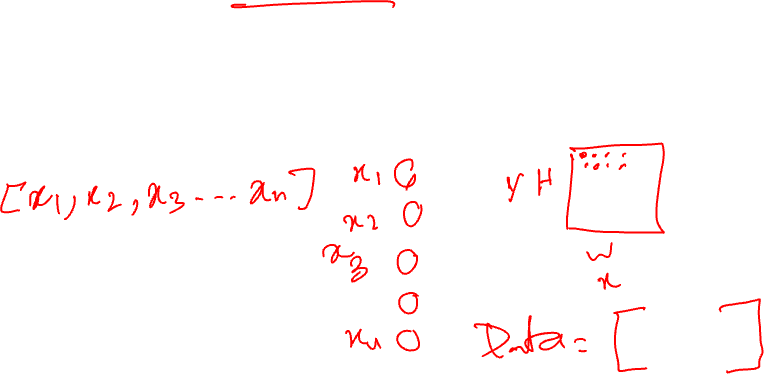 [x1, x2, x3 --- xn]
x1
x2
x3
xn
y H
W
x
Data = [ ]